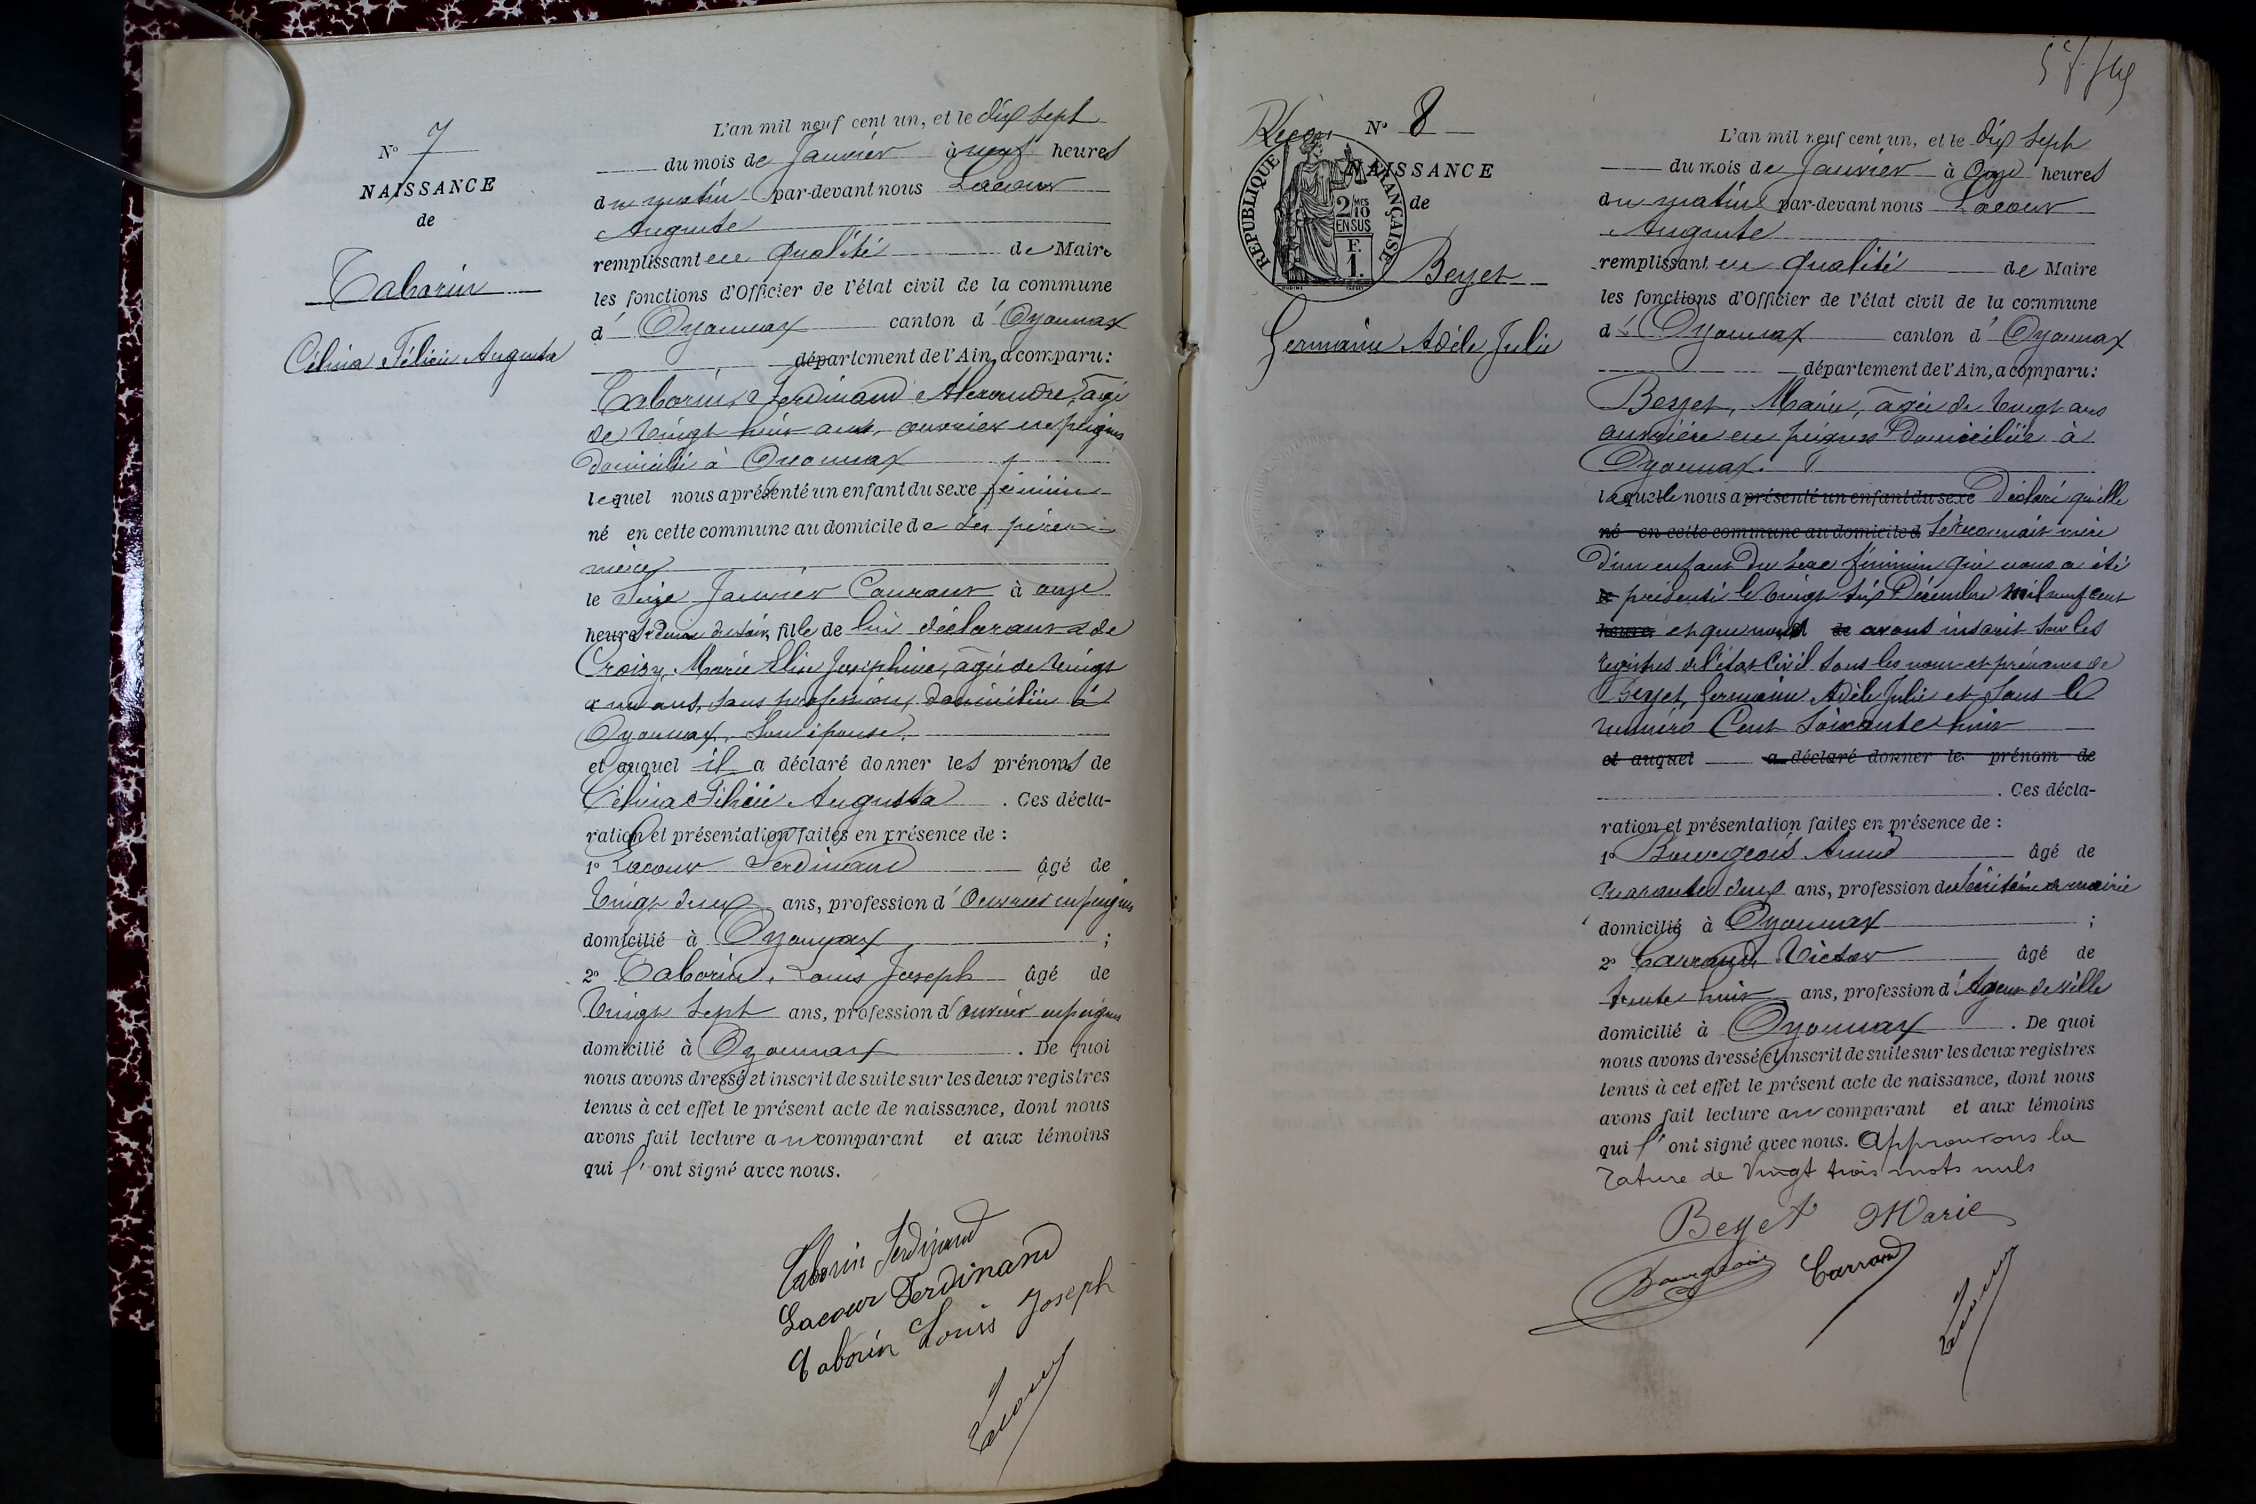 N° 7
NAISSANCE
de
Taborin
Célina Félicie Augusta
L'an mil neuf cent un, et le dix sept
du mois de Janvier à neuf heures
du matin par-devant nous Lacour
Auguste
remplissant en qualité de Maire
les fonctions d'Officier de l'état civil de la commune
d' Oyonnax canton d' Oyonnax
département de l'Ain, a comparu:
Taborin, Ferdinand Alexandre, âgé
de vingt huit ans, ouvrier en peignes
domicilié à Oyonnax
lequel nous a présenté un enfant du sexe féminin
né en cette commune au domicile de ses père et
mère
le seize Janvier Courant à onze
heures du soir, fille de lui déclarant & de
Croisy, Marie Elise Joséphine, âgée de vingt
x un ans, sans profession, domiciliée à
Oyonnax, son épouse,
et auquel il a déclaré donner les prénoms de
Célina Félicie Augusta. Ces décla-
ration et présentation faites en présence de :
1° Lacour Ferdinand âgé de
vingt deux ans, profession d'Ouvrier en peignes
domicilié à Oyonnax ;
2° Taborin, Louis Joseph âgé de
vingt sept ans, profession d'ouvrier en peignes
domicilié à Oyonnax. De quoi
nous avons dressé et inscrit de suite sur les deux registres
tenus à cet effet le présent acte de naissance, dont nous
avons fait lecture au comparant et aux témoins
qui l'ont signé avec nous.
Taborin Ferdinand
Lacour Ferdinand
Taborin Louis Joseph
Lacour
N° 8
NAISSANCE
de
REPUBLIQUE FRANÇAISE
2/10 MES
EN SUS
F.
1.
Beyet
Germaine Adèle Julie
L'an mil neuf cent un, et le dix sept
du mois de Janvier à onze heures
du matin par-devant nous Lacour
Auguste
remplissant en qualité de Maire
les fonctions d'Officier de l'état civil de la commune
d' Oyonnax canton d' Oyonnax
département de l'Ain, a comparu:
Beyet, Marie, âgée de vingt ans
ouvrière en peignes domiciliée à
Oyonnax.
laquelle nous a présenté un enfant du sexe Déclaré qu'elle
né en cette commune au domicile d se reconnait mère
d'un enfant du sexe féminin qui nous a été
le présenté le vingt six Décembre mil neuf cent
heures et que nous de avons inscrit sur les
registres de l'état Civil sous les nom et prénoms de
Beyet, Germaine Adèle Julie et sous le
numéro Cent Soixante huit
et auquel a déclaré donner le prénom de
. Ces décla-
ration et présentation faites en présence de :
1° Bourgeois Armand âgé de
quarante deux ans, profession de secrétaire de mairie
domicilié à Oyonnax ;
2° Carrand, Victor âgé de
trente huit ans, profession d'Agent de ville
domicilié à Oyonnax. De quoi
nous avons dressé et inscrit de suite sur les deux registres
tenus à cet effet le présent acte de naissance, dont nous
avons fait lecture au comparant et aux témoins
qui l'ont signé avec nous. Approuvons la
rature de vingt trois mots nuls
Beyet Marie
Bourgeois Carrand
Lacour